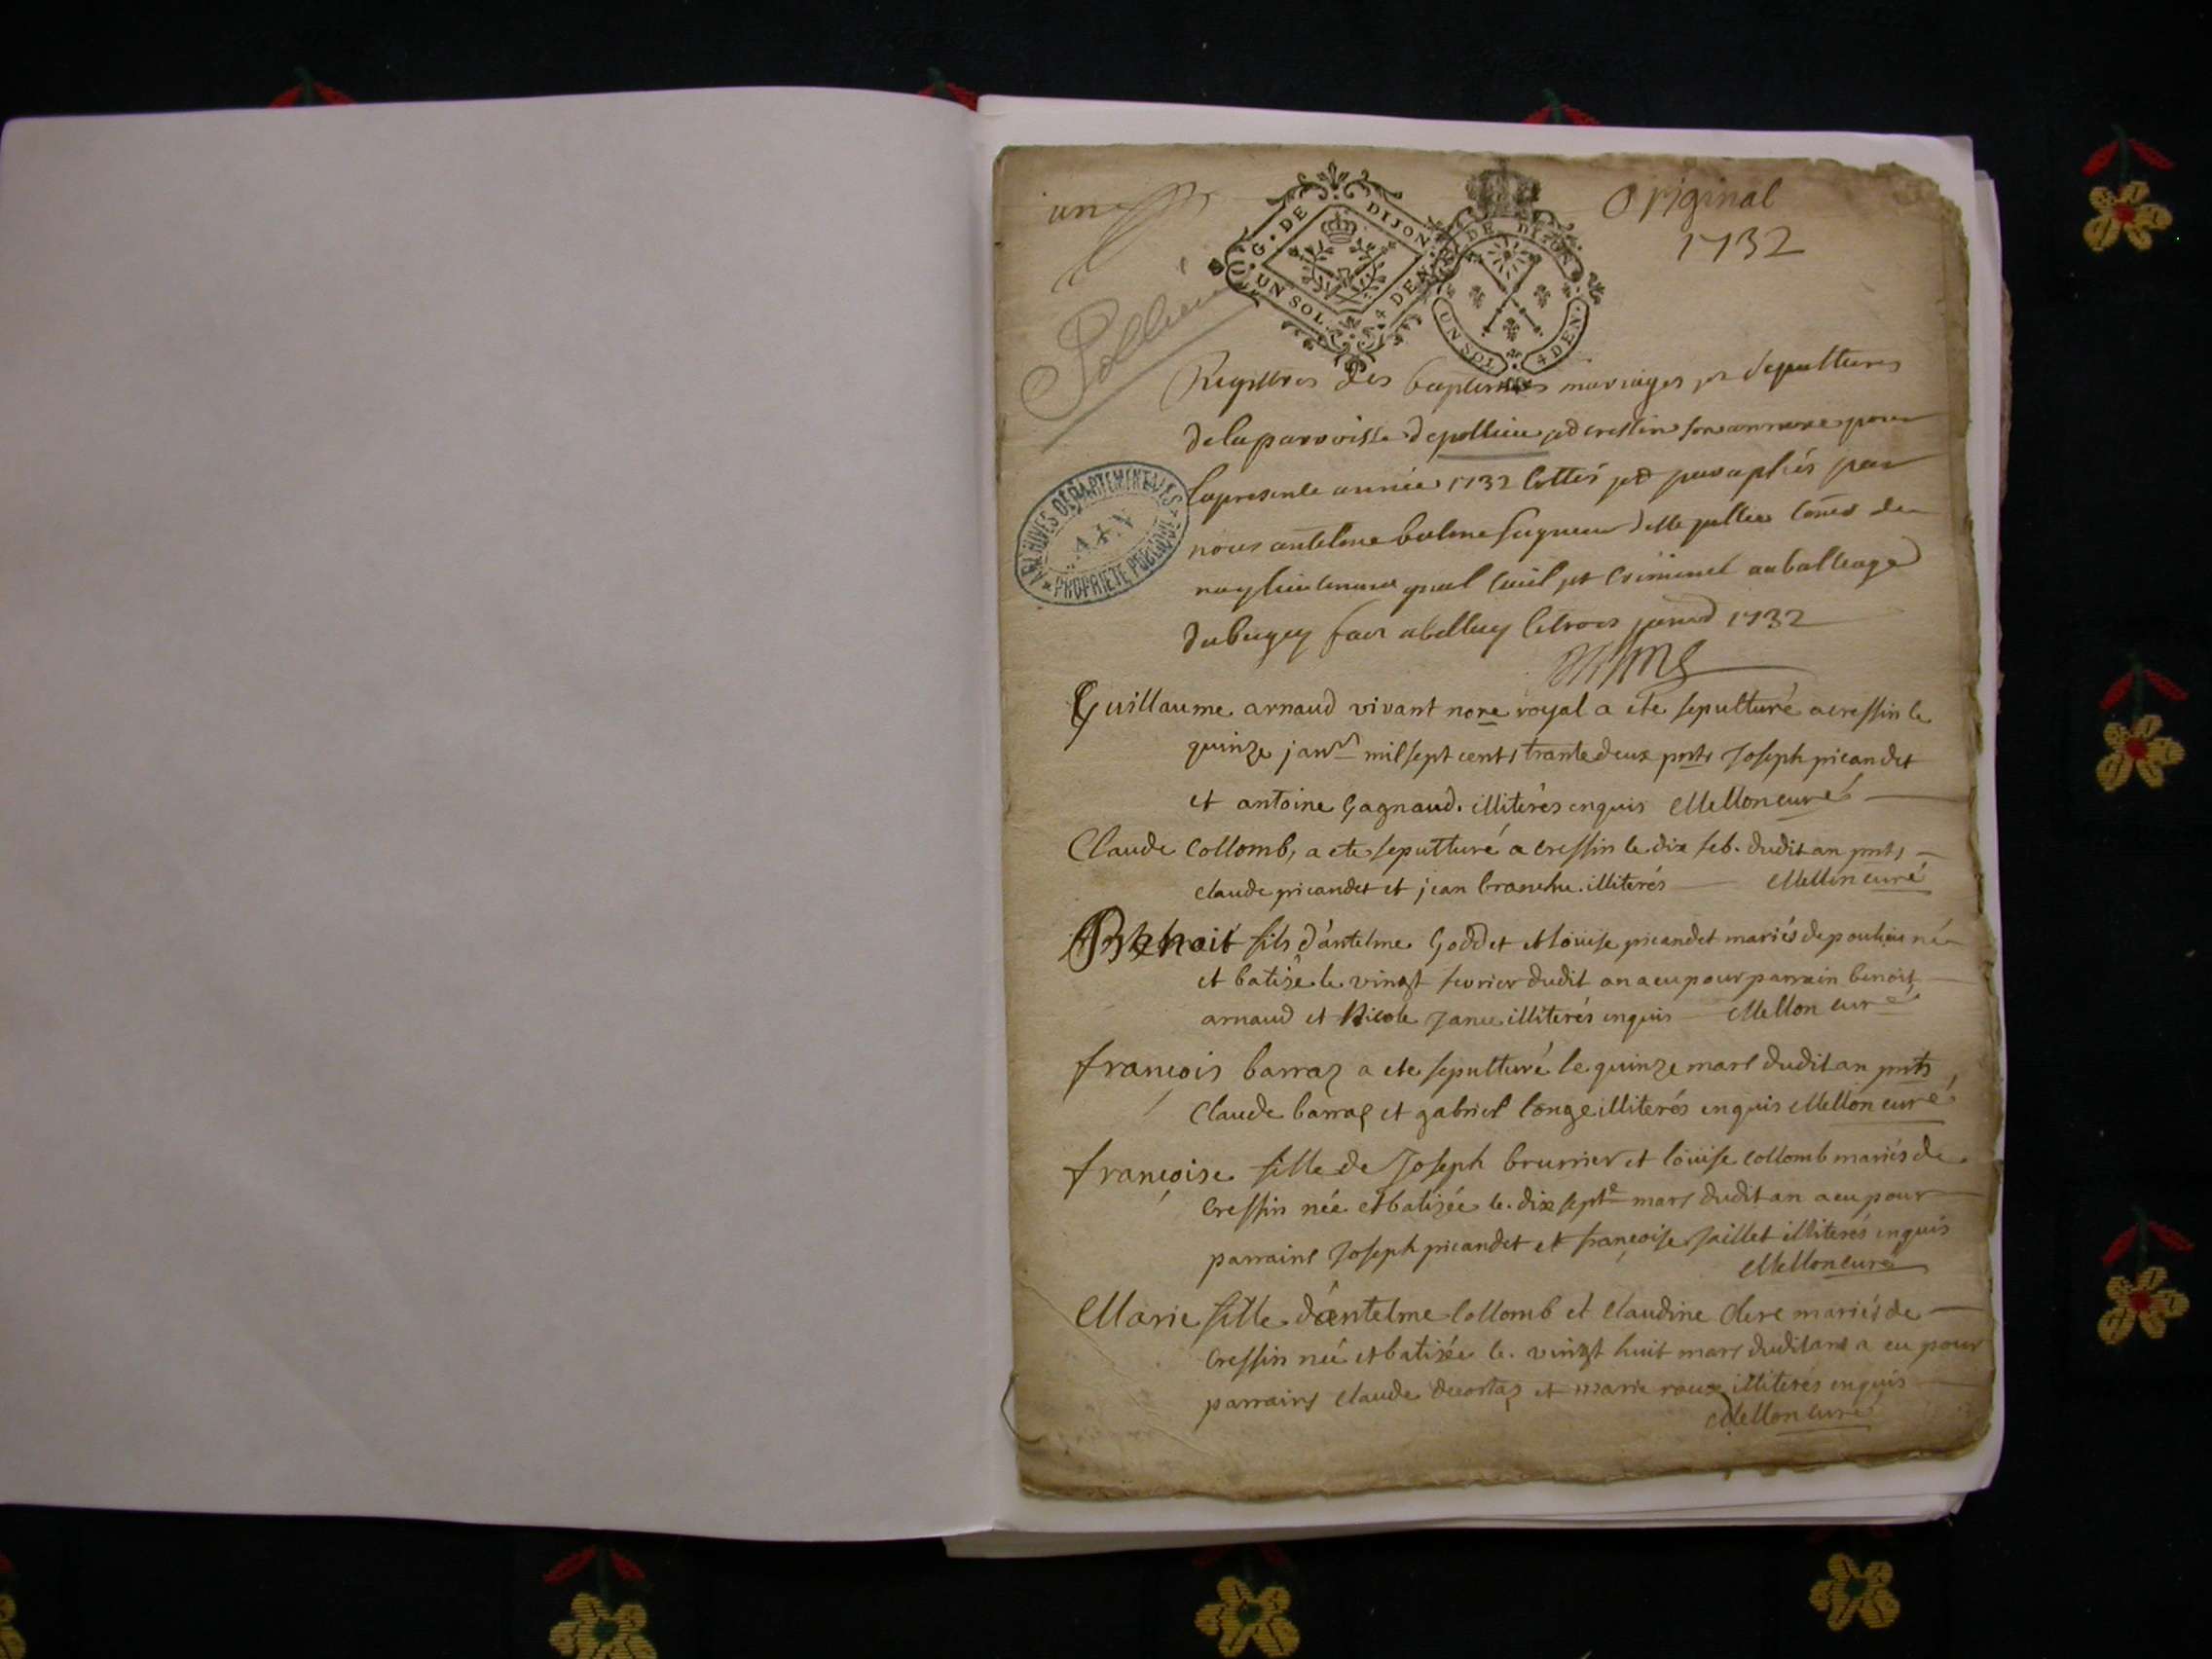 une
Original
1732
G. DE DIJON
UN SOL 4 DEN.
G. DE DIJON
UN SOL 4 DEN.
Pollieu
ARCHIVES DÉPARTEMENTALES
AIN
PROPRIÉTÉ PUBLIQUE
Registres des baptemes mariages et sepultures
de la parroisse de pollieu et de cressin son annexe pour
la presente année 1732 cottés et paraphés par
nous antelme balme seigneur
lieutenant gnal civil et criminel au balleage
du bugey fait a belley le trois janv 1732
Guillaume arnaud vivant nore royal a ete sepulturé a cressin le
quinze janvr mil sept cents trante deux pnts Joseph picandet
et antoine Gagnaud. illiterés enquis Mellon curé
Claude Collomb, a ete sepulturé a cressin le dix feb. dudit an pnts
claude picandet et jean branche. illiterés Mellon curé
Benoit fils d'antelme Goddet et loüise picandet mariés de poulieu né
et batisé le vingt fevrier dudit an a eu pour parrain benoit
arnaud et Nicole Janu illiterés enquis Mellon curé
françois barraz a ete sepulturé le quinze mars dudit an pnts
Claude barraz et gabriel longe illiterés enquis Mellon curé
françoise fille de Joseph brunier et loüise collomb mariés de
Cressin née et batizée le dix septe mars dudit an a eu pour
parrains Joseph picandet et françoise Jaillet illiterés enquis
Mellon curé
Marie fille d'antelme Collomb et Claudine Clere mariés de
Cressin née et batizée le vingt huit mars dudit an a eu pour
parrains claude decortaz et marie roux illiterés enquis
Mellon curé